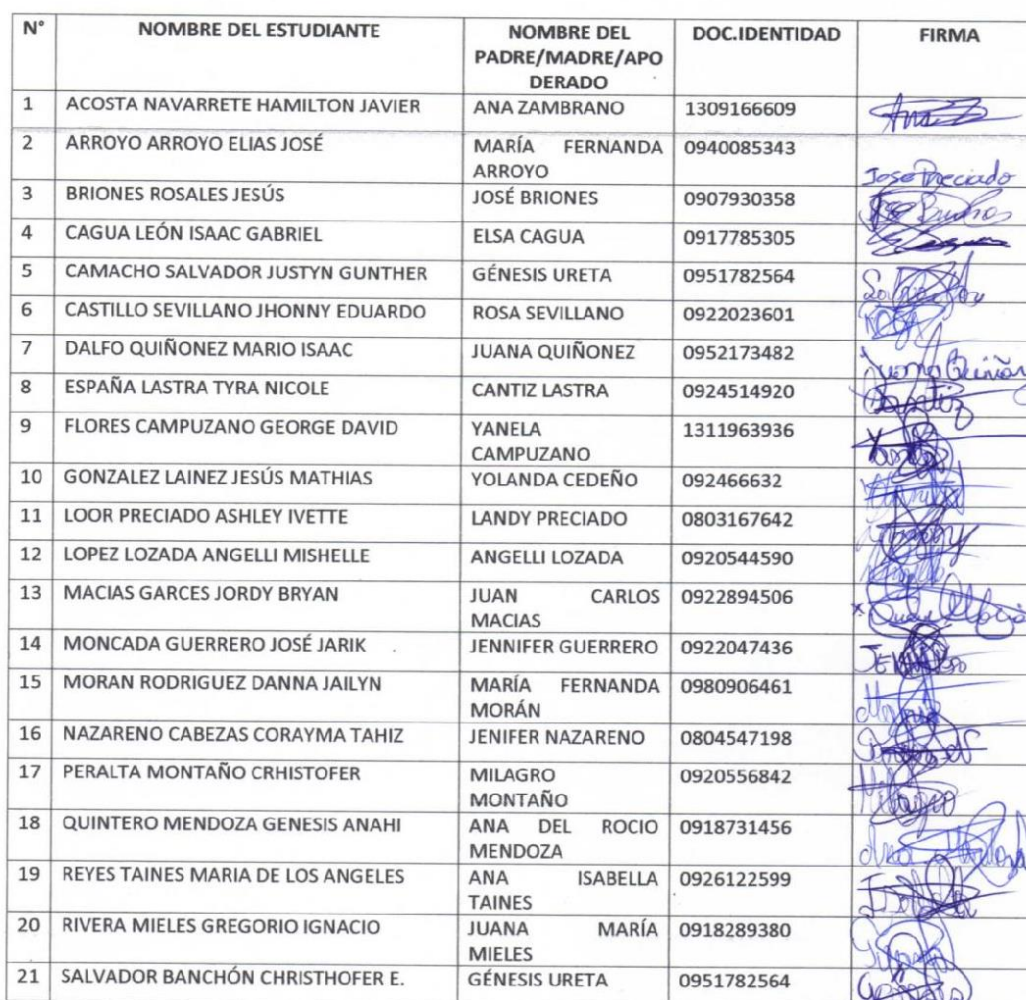 N° NOMBRE DEL ESTUDIANTE NOMBRE DEL DOC.IDENTIDAD FIRMA
PADRE/MADRE/APO
DERADO
1 ACOSTA NAVARRETE HAMILTON JAVIER ANA ZAMBRANO 1309166609 Ana
2 ARROYO ARROYO ELIAS JOSÉ MARÍA FERNANDA 0940085343
ARROYO Jose Preciado
3 BRIONES ROSALES JESÚS JOSÉ BRIONES 0907930358
4 CAGUA LEÓN ISAAC GABRIEL ELSA CAGUA 0917785305
5 CAMACHO SALVADOR JUSTYN GUNTHER GÉNESIS URETA 0951782564
6 CASTILLO SEVILLANO JHONNY EDUARDO ROSA SEVILLANO 0922023601
7 DALFO QUIÑONEZ MARIO ISAAC JUANA QUIÑONEZ 0952173482
8 ESPAÑA LASTRA TYRA NICOLE CANTIZ LASTRA 0924514920
9 FLORES CAMPUZANO GEORGE DAVID YANELA 1311963936
CAMPUZANO
10 GONZALEZ LAINEZ JESÚS MATHIAS YOLANDA CEDEÑO 092466632
11 LOOR PRECIADO ASHLEY IVETTE LANDY PRECIADO 0803167642
12 LOPEZ LOZADA ANGELLI MISHELLE ANGELLI LOZADA 0920544590
13 MACIAS GARCES JORDY BRYAN JUAN CARLOS 0922894506
MACIAS
14 MONCADA GUERRERO JOSÉ JARIK JENNIFER GUERRERO 0922047436
15 MORAN RODRIGUEZ DANNA JAILYN MARÍA FERNANDA 0980906461
MORÁN
16 NAZARENO CABEZAS CORAYMA TAHIZ JENIFER NAZARENO 0804547198
17 PERALTA MONTAÑO CRHISTOFER MILAGRO 0920556842
MONTAÑO
18 QUINTERO MENDOZA GENESIS ANAHI ANA DEL ROCIO 0918731456
MENDOZA
19 REYES TAINES MARIA DE LOS ANGELES ANA ISABELLA 0926122599
TAINES
20 RIVERA MIELES GREGORIO IGNACIO JUANA MARÍA 0918289380
MIELES
21 SALVADOR BANCHÓN CHRISTHOFER E. GÉNESIS URETA 0951782564